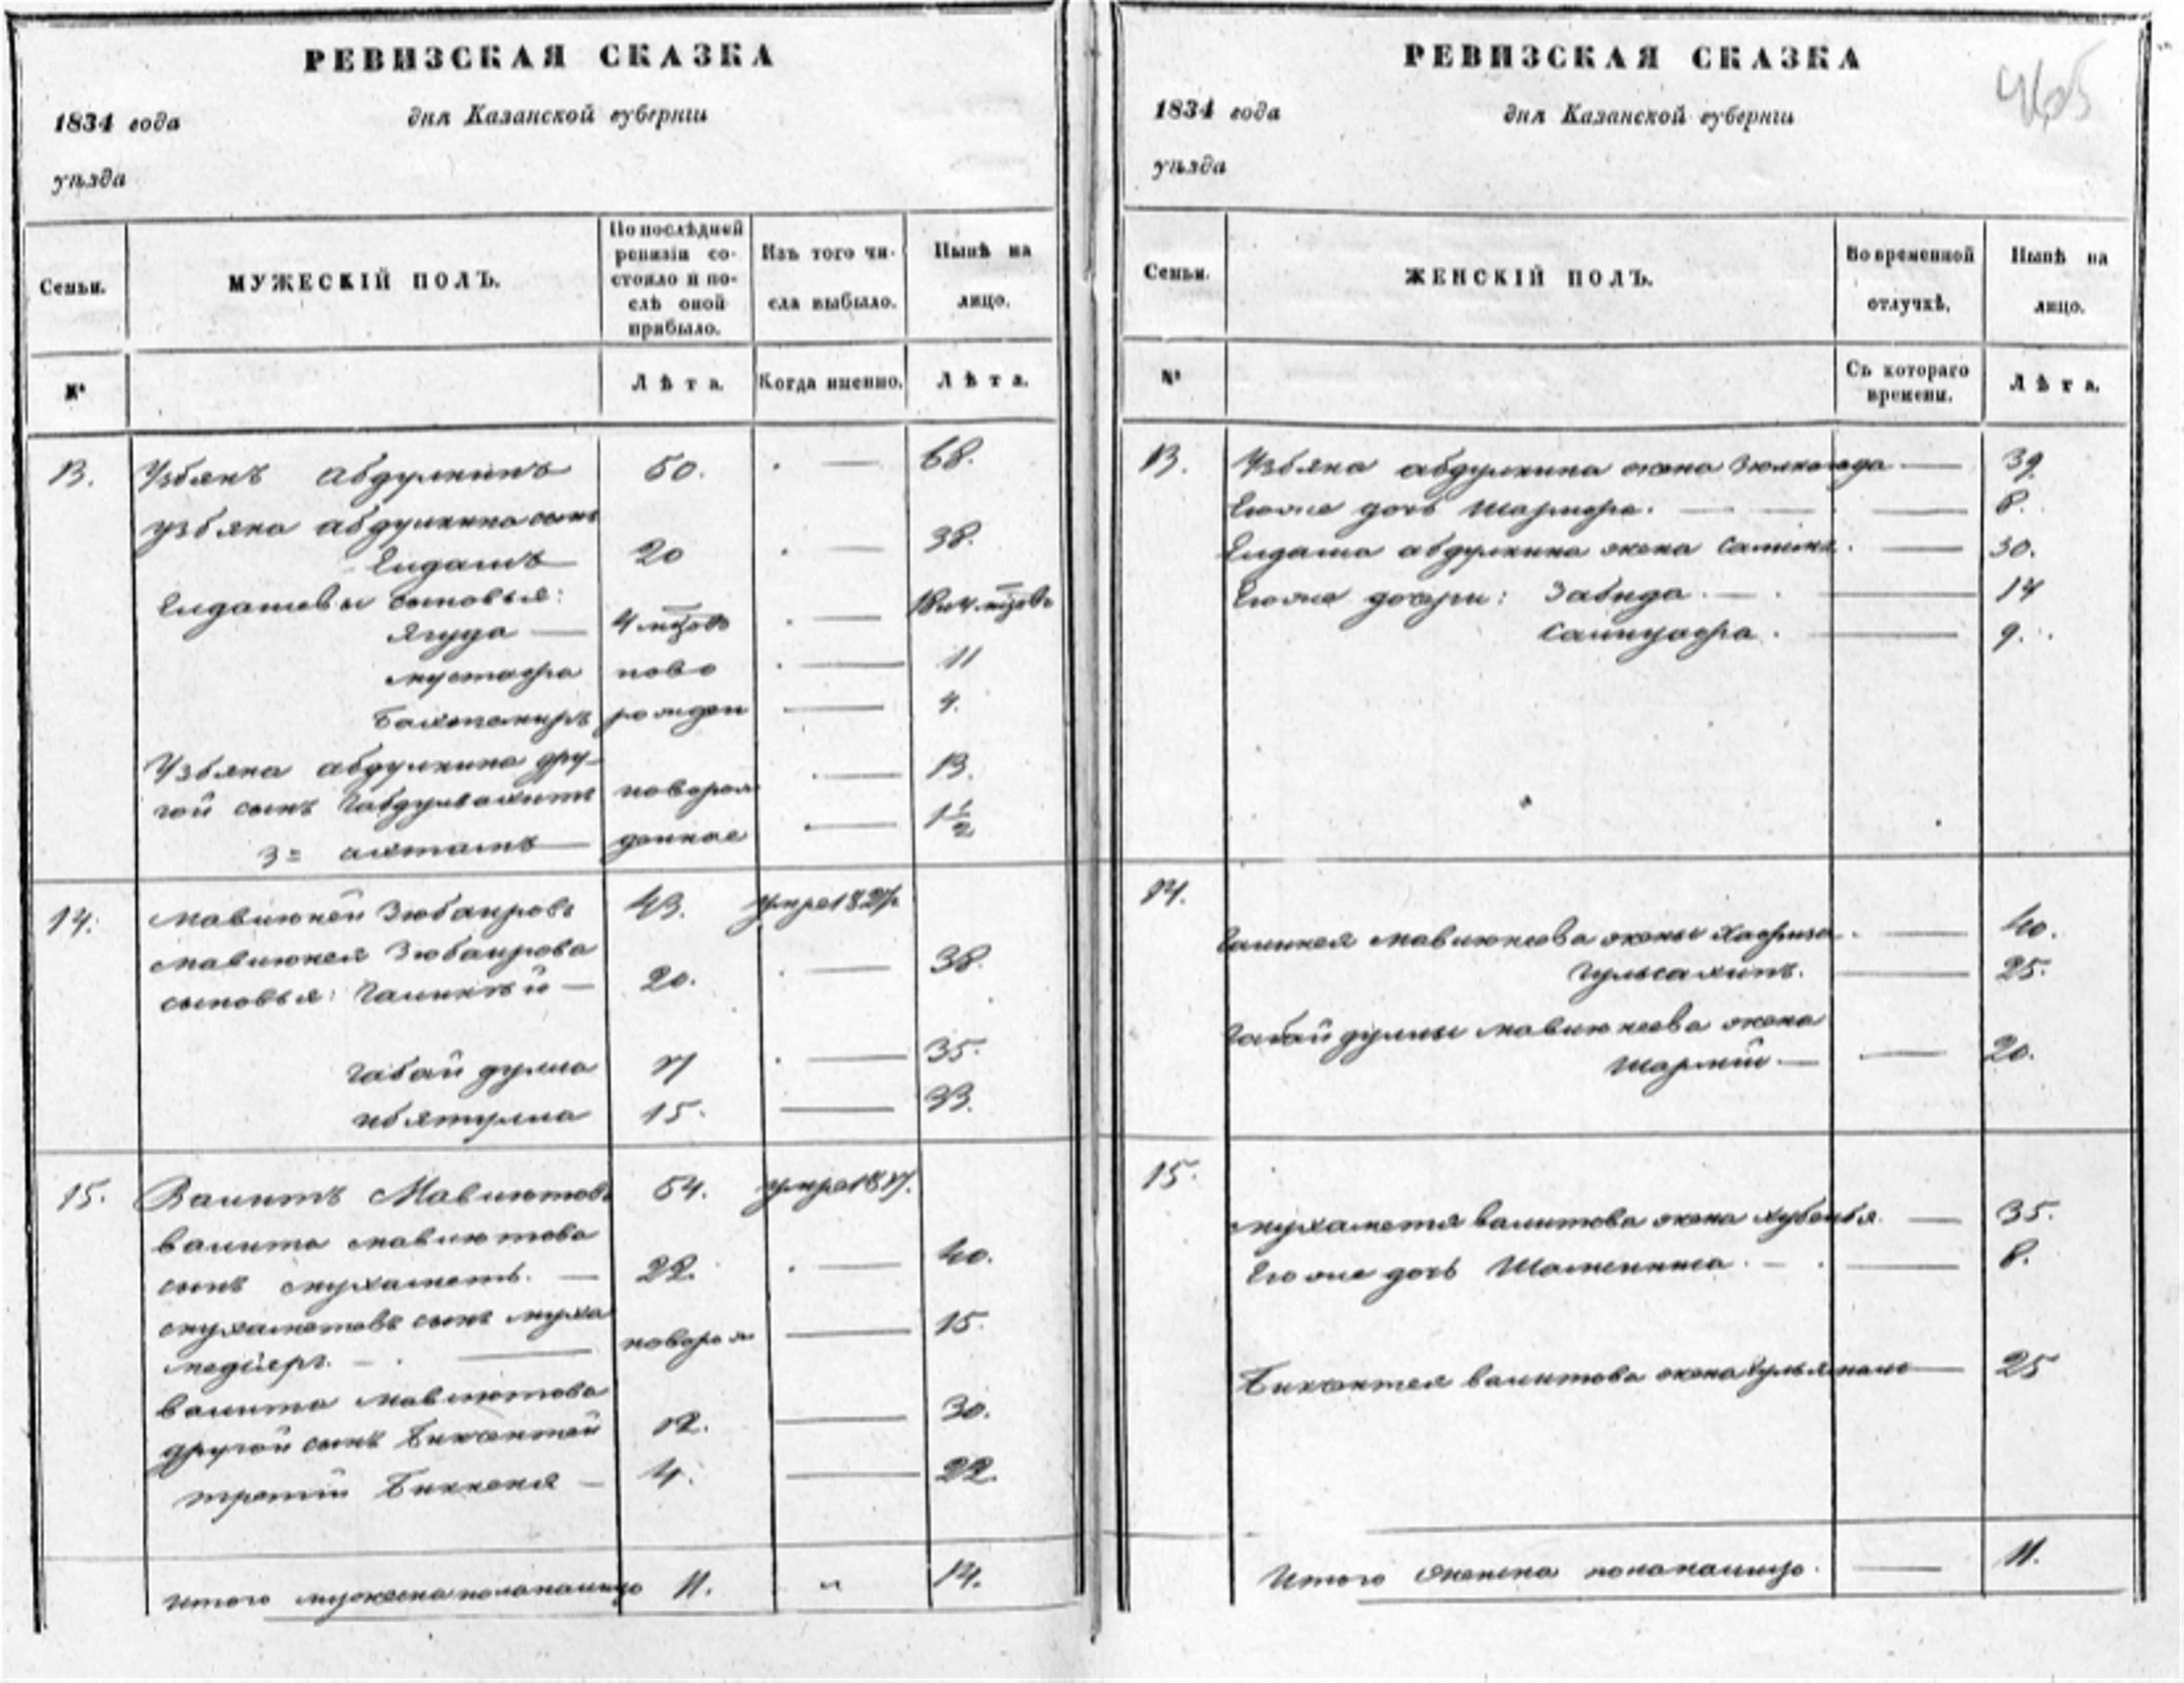 РЕВИЗСКАЯ СКАЗКА
1834 года дня Казанской губернiи
уѣзда
Семьи.
МУЖЕСКIЙ ПОЛЪ.
По послѣдней
ревизiи со-
стояло и по-
слѣ оной
прибыло.
Изъ того чи-
сла выбыло.
Нынѣ на
лицо.
№
Лѣта.
Когда именно.
Лѣта.
13. Узбякъ Абдулкинъ 50. — 68.
узбяка абдулкина сынъ
Елдашъ 20 — 38.
Елдашевы сыновья:
Ягуда — 4 мцовъ —
мустафа ново — 11
Бахтемиръ рожден — 4.
Узбяка абдулкина дру-
гой сынъ Габдулвахитъ новорож — 13.
3= ахтамъ — денное — 1½
14. мавлюкей Зюбаировъ 43. умре 182
мавлюкея Зюбаирова
сыновья: Галикѣй — 20. — 38.
Габайдулла 17 — 35.
ибятулла 15. — 33.
15. Валитъ Мавлютовъ 54. умре 18
валита мавлютова
сынъ мухаметь. — 22. — 40.
мухаметовъ сынъ муха
медіяръ. — новорож — 15.
валита мавлютова
другой сынъ Бикантай 12. — 30.
третій Биккеня — 4. — 22.
итого мужеска пола налицо 11. „ 14.
РЕВИЗСКАЯ СКАЗКА
465
1834 года дня Казанской губернiи
уѣзда
Семьи.
ЖЕНСКIЙ ПОЛЪ.
Во временной
отлучкѣ.
Нынѣ на
лицо.
№
Съ котораго
времени.
Лѣта.
13. Узбяка абдулкина жена — 39.
Егоже дочь Шарифа. — 8.
Елдаша абдулкина жена Салима. — 30.
Егоже дочери: Забида. — 14
— 9.
14.
Галикея мавлюкеева жены Хафиза. — 40.
Гульсахипъ. — 25.
Габайдуллы мавлюкеева жена
— 20.
15.
мухаметя валитова жена — 35.
Егоже дочь — 8.
Бикантея валитова жена — 25
Итого женска пола налицо. — 11.